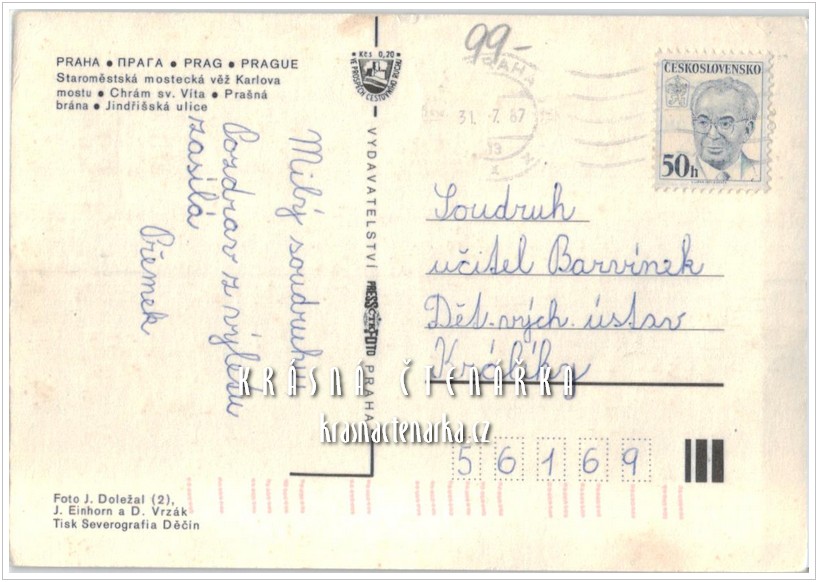 PRAHA • ПРАГА • PRAG • PRAGUE
Staroměstská mostecká věž Karlova
mostu • Chrám sv. Víta • Prašná
brána • Jindřišská ulice
Milý soudruhu
Pozdrav z výletu
zasílá
Přemek
Kčs 0,20
VE PROSPĚCH CESTOVNÍHO RUCHU
VYDAVATELSTVÍ PRESSFOTO PRAHA
ČTK
99-
PRAHA
31. 7. 87
ČESKOSLOVENSKO
50h
Soudruh
učitel Barvínek
Dět. vých. ústav
Králíky
56169
KRÁSNÁ ČTENÁŘKA
krasnactenarka.cz
Foto J. Doležal (2),
J. Einhorn a D. Vrzák
Tisk Severografia Děčín